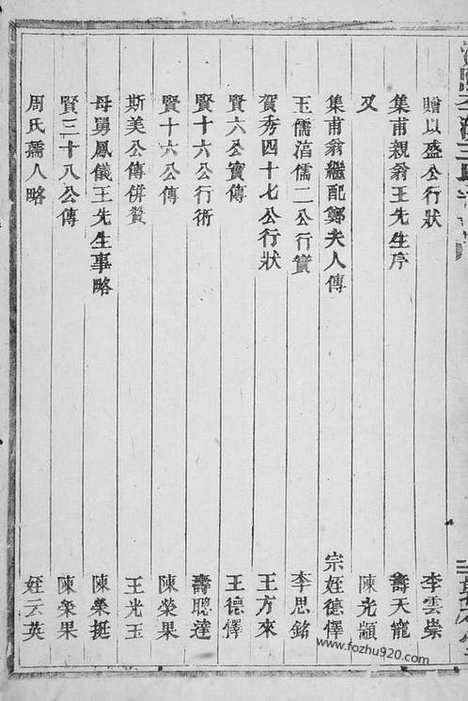 贈以盛公行狀 李雲崇
集甫親翁王先生序 壽天寵
又 陳光顓
集甫翁繼配鄭夫人傳 宗姪德㒜
玉儒湻儒二公行實 李思銘
賀秀四十七公行狀 王方來
賢六公實傳 王德㒜
賢十六公行術 壽聰達
賢十六公傳 陳榮果
斯美公傳併贊 王光玉
母舅鳳儀王先生事略 陳榮挺
賢三十八公傳 陳榮果
周氏孺人略 姪云英
www.fozhu920.com